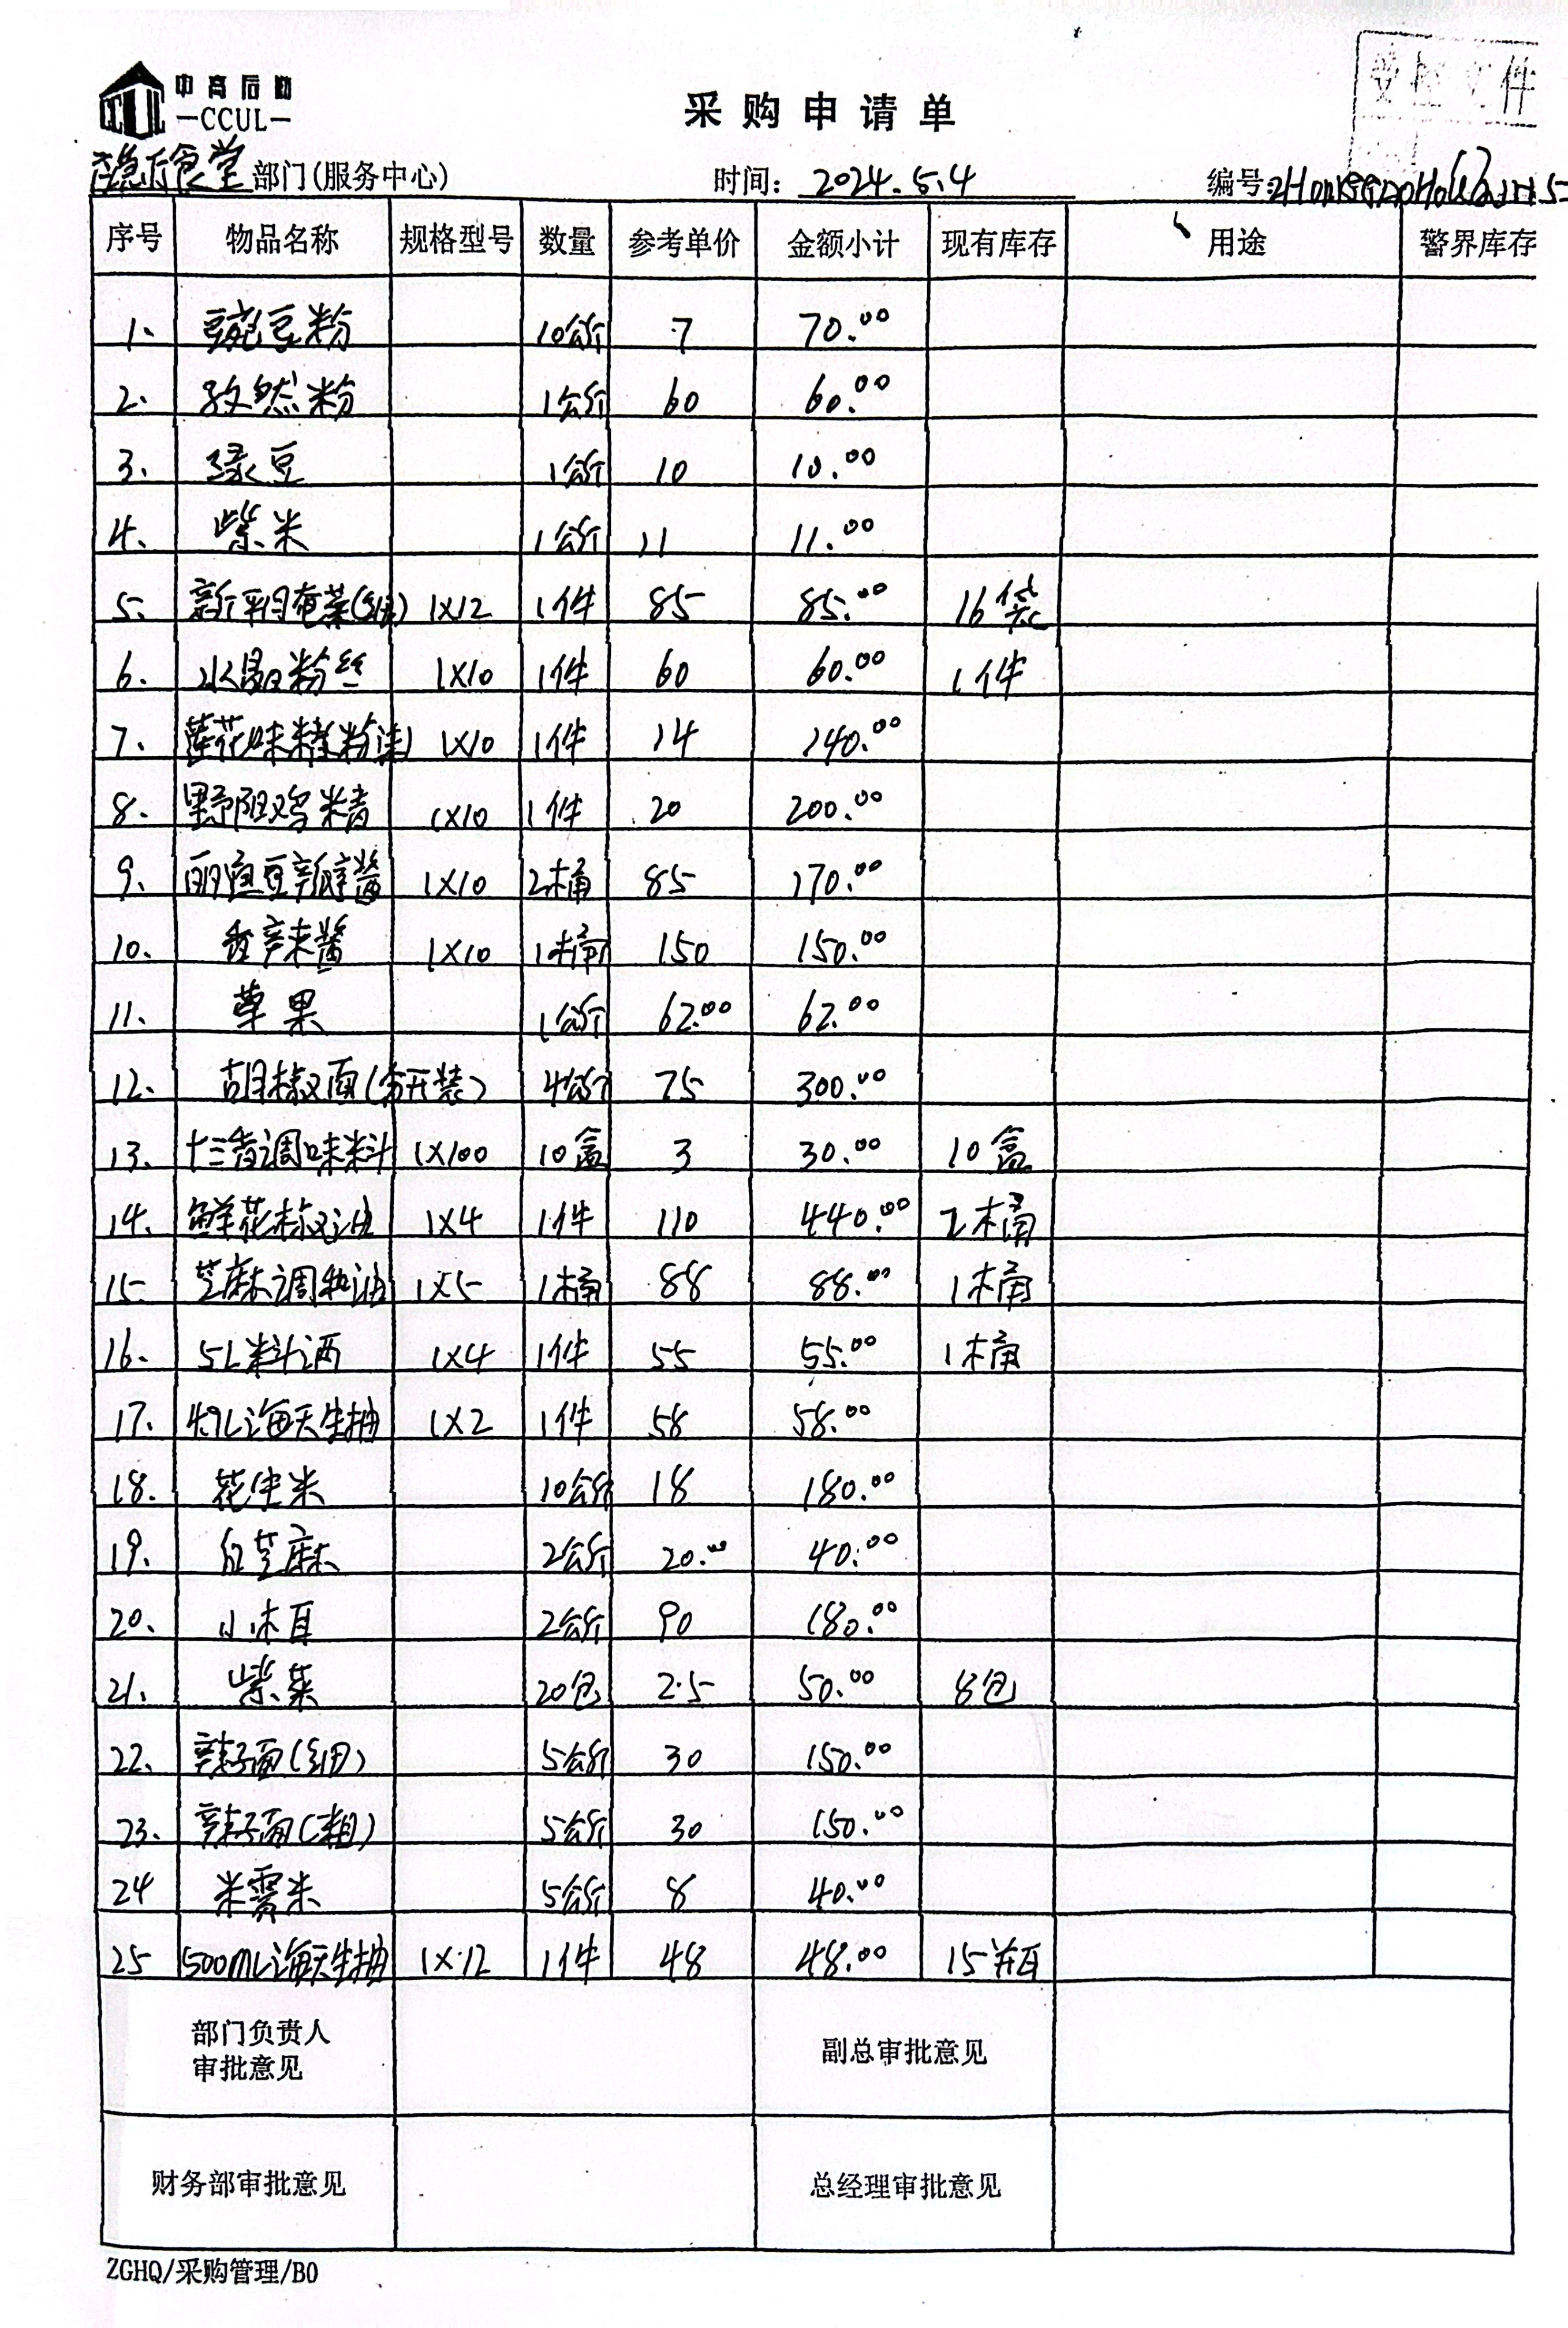 中高后勤
—CCUL—
受控文件
采购申请单
食堂 部门(服务中心) 时间: 2024.5.4 编号:
序号 物品名称 规格型号 数量 参考单价 金额小计 现有库存 用途 警界库存
1、 豌豆粉 10公斤 7 70.00
2、 孜然粉 1公斤 60 60.00
3、 绿豆 1公斤 10 10.00
4、 紫米 1公斤 11 11.00
5、 新平腌菜(细) 1X12 1件 85 85.00 16袋
6、 水晶粉丝 1X10 1件 60 60.00 1件
7、 莲花味精 1X10 1件 14 140.00
8、 野阳鸡精 1X10 1件 20 200.00
9、 豆瓣酱 1X10 2桶 85 170.00
10、 香辣酱 1X10 1桶 150 150.00
11、 草果 1公斤 62.00 62.00
12、 胡椒面(未开装) 4公斤 75 300.00
13、 十三香调味料 1X100 10盒 3 30.00 10盒
14、 鲜花椒油 1X4 1件 110 440.00 2桶
15 芝麻调和油 1X5 1桶 88 88.00 1桶
16、 5L料酒 1X4 1件 55 55.00 1桶
17、 4.9L海天生抽 1X2 1件 58 58.00
18、 花生米 10公斤 18 180.00
19、 白芝麻 2公斤 20.00 40.00
20、 小木耳 2公斤 90 180.00
21、 紫菜 20包 2.5 50.00 8包
22、 辣子面(细) 5公斤 30 150.00
23、 辣子面(粗) 5公斤 30 150.00
24 米 5公斤 8 40.00
25 500ML海天生抽 1X12 1件 48 48.00 15瓶
部门负责人
审批意见
副总审批意见
财务部审批意见 总经理审批意见
ZGHQ/采购管理/B0